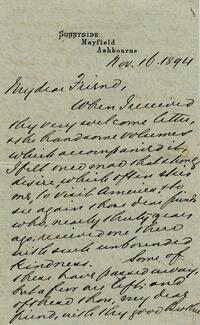 SUNNYSIDE,
Mayfield
Ashbourne
Nov. 16. 1894
My dear Friend,
When I received
thy very welcome letter,
& the handsome volumes
which accompanied it,
I felt once more that strong
desire, which often stirs
me, to visit America, & to
see again those dear friends
who, nearly thirty years
ago, received me there
with such unbounded
Kindness. Some of
these have passed away,
but a few are left; and
of these thou, my dear
friend, with thy good